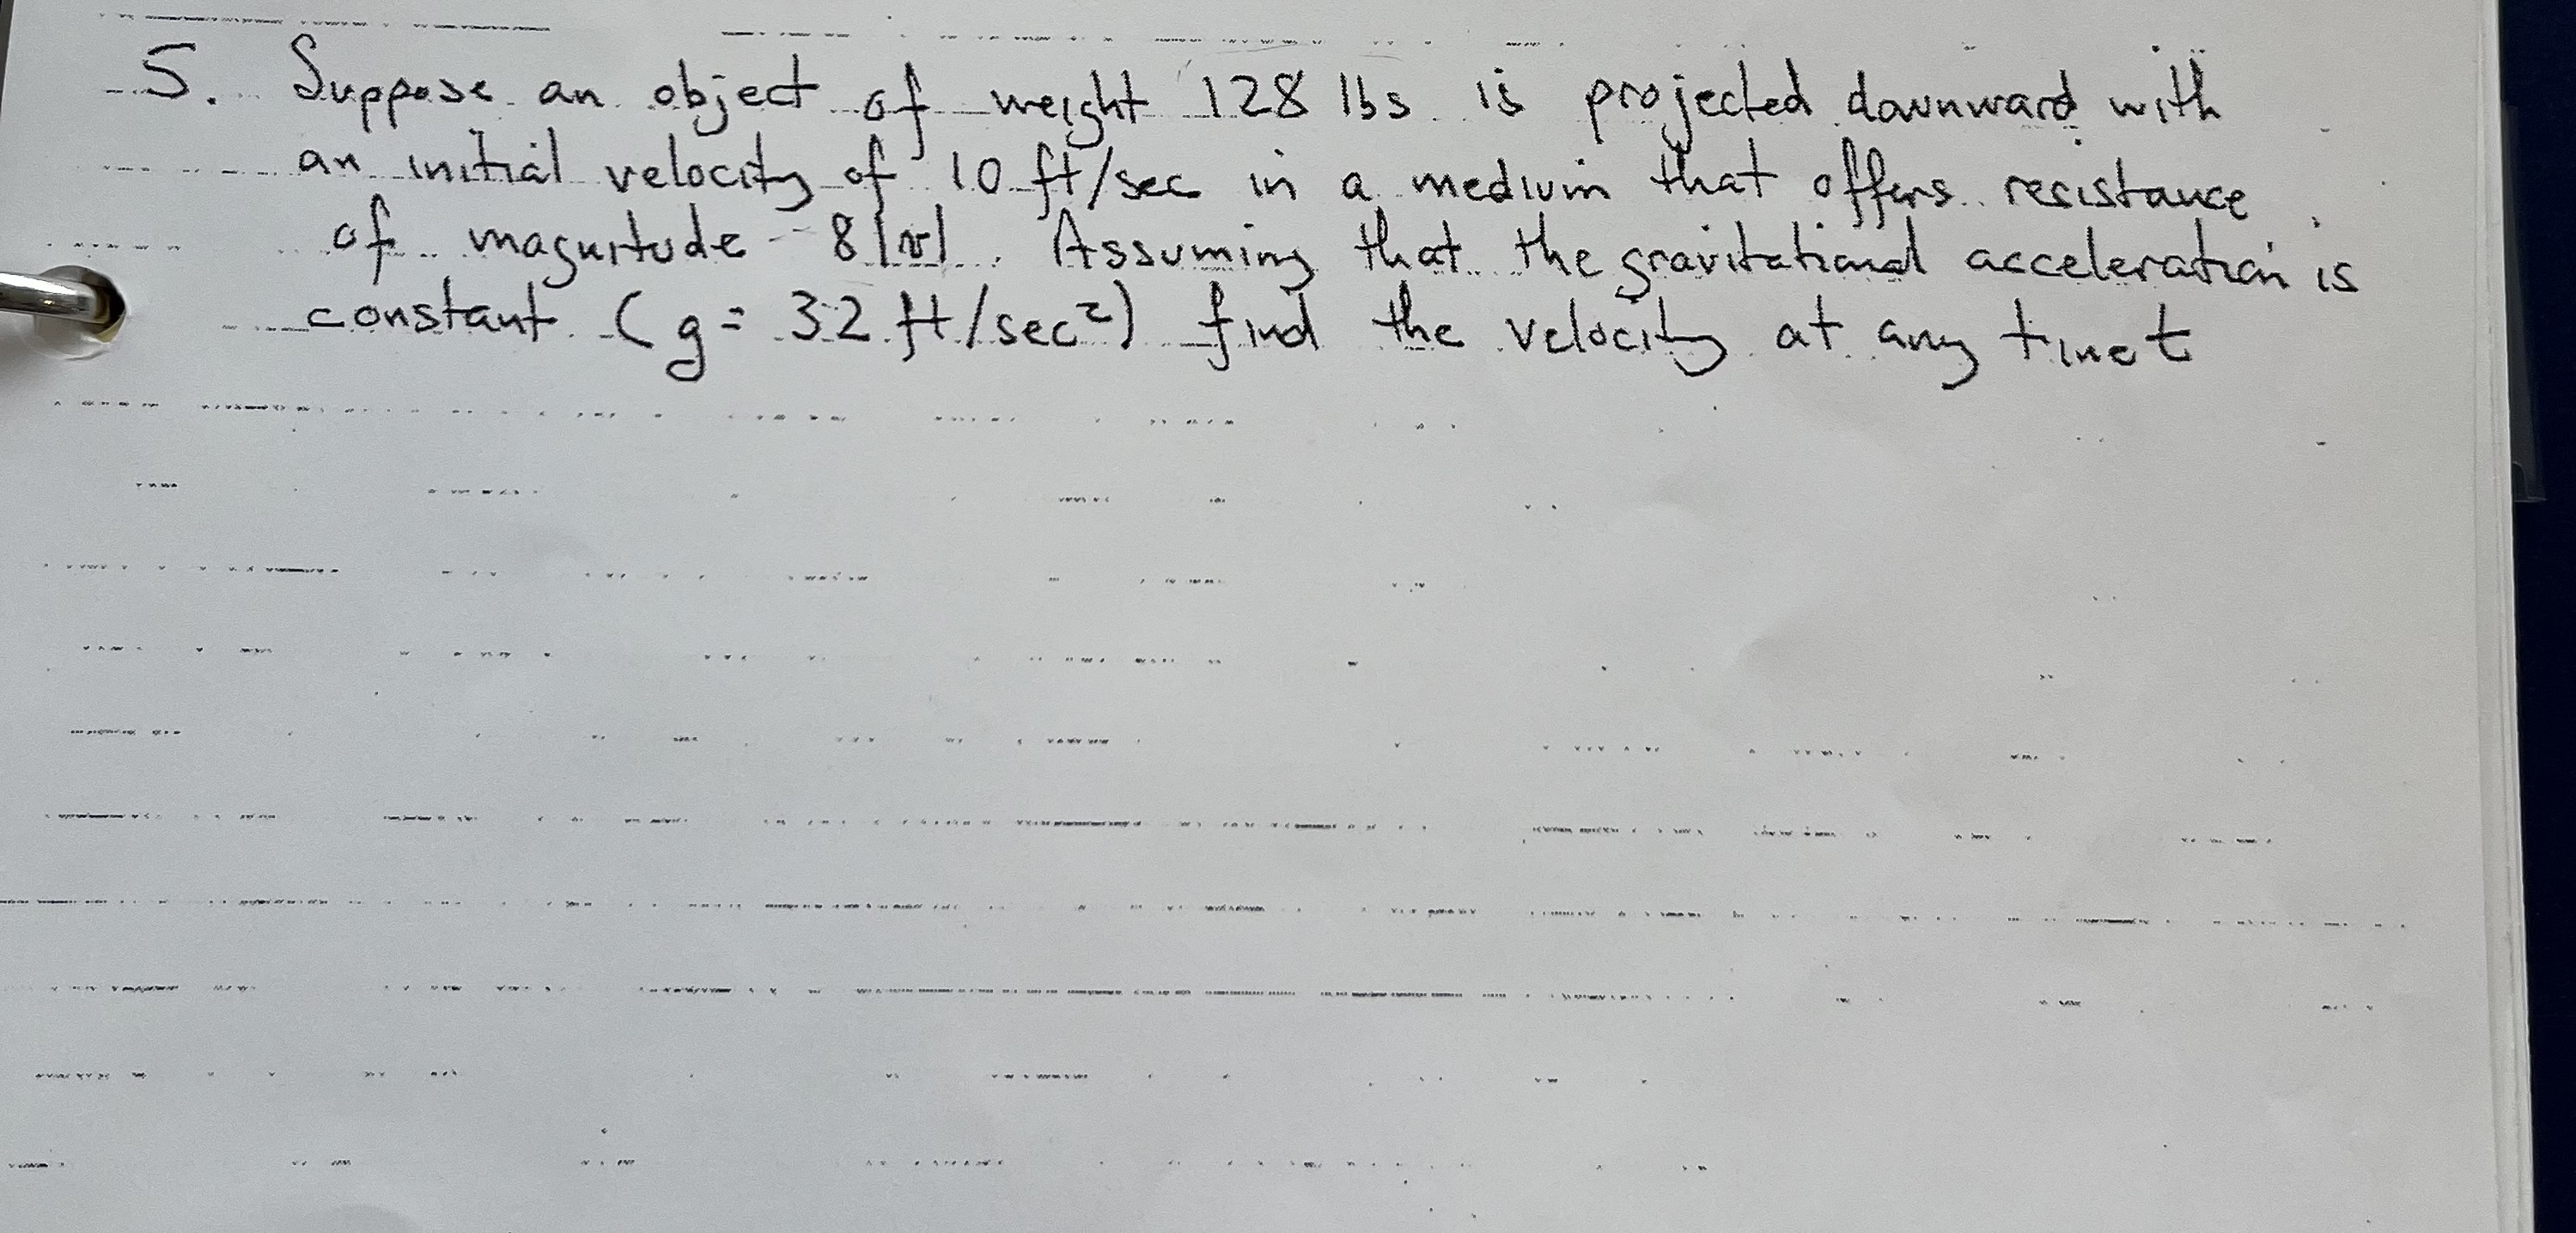 5. Suppose an object of weight 128 lbs is projected downward with
an initial velocity of 10 ft/sec in a medium that offers resistance
of magnitude 8|v|. Assuming that the gravitational acceleration is
constant (g = 32 ft/sec²) find the velocity at any time t